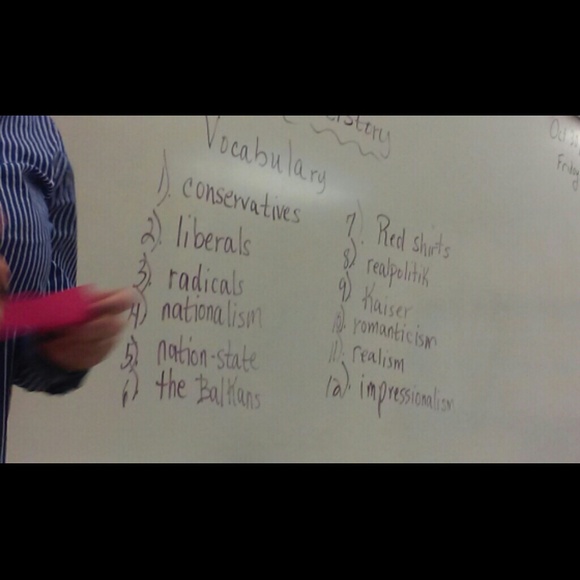 Vocabulary
1). conservatives
2). liberals
3). radicals
4) nationalism
5) nation-state
6) the Balkans
7). Red shirts
8) realpolitik
9) Kaiser
10). romanticism
11). realism
12). impressionalism
Friday